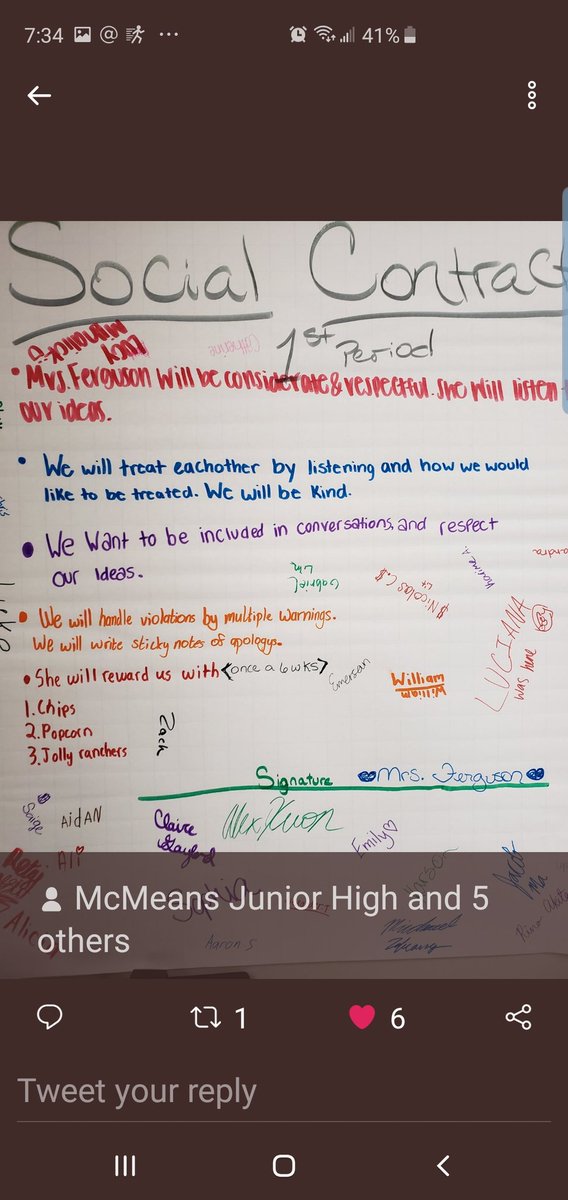 7:34 @ ... 41%
Social Contract
1st Period
Catherine
• Mrs. Ferguson will be considerate & respectful. She will listen
our ideas.
• We will treat eachother by listening and how we would
like to be treated. We will be kind.
• We want to be included in conversations, and respect
our ideas.
Gabriel
Lin
$ Nicolas C. $
• We will handle violations by multiple warnings.
We will write sticky notes of apologys.
LUCIANA
was here
• She will reward us with <once a 6wks>
Emerson
William
William
1. Chips
2. Popcorn
3. Jolly ranchers
Zach
Signature Mrs. Ferguson
Saige
AidAN
Claire
Gayford
Alex Kwon
Emily
Ali
Sophia
Jacob
Ma
McMeans Junior High and 5
others
Aaron S
Michael
Zhang
1 6
Tweet your reply